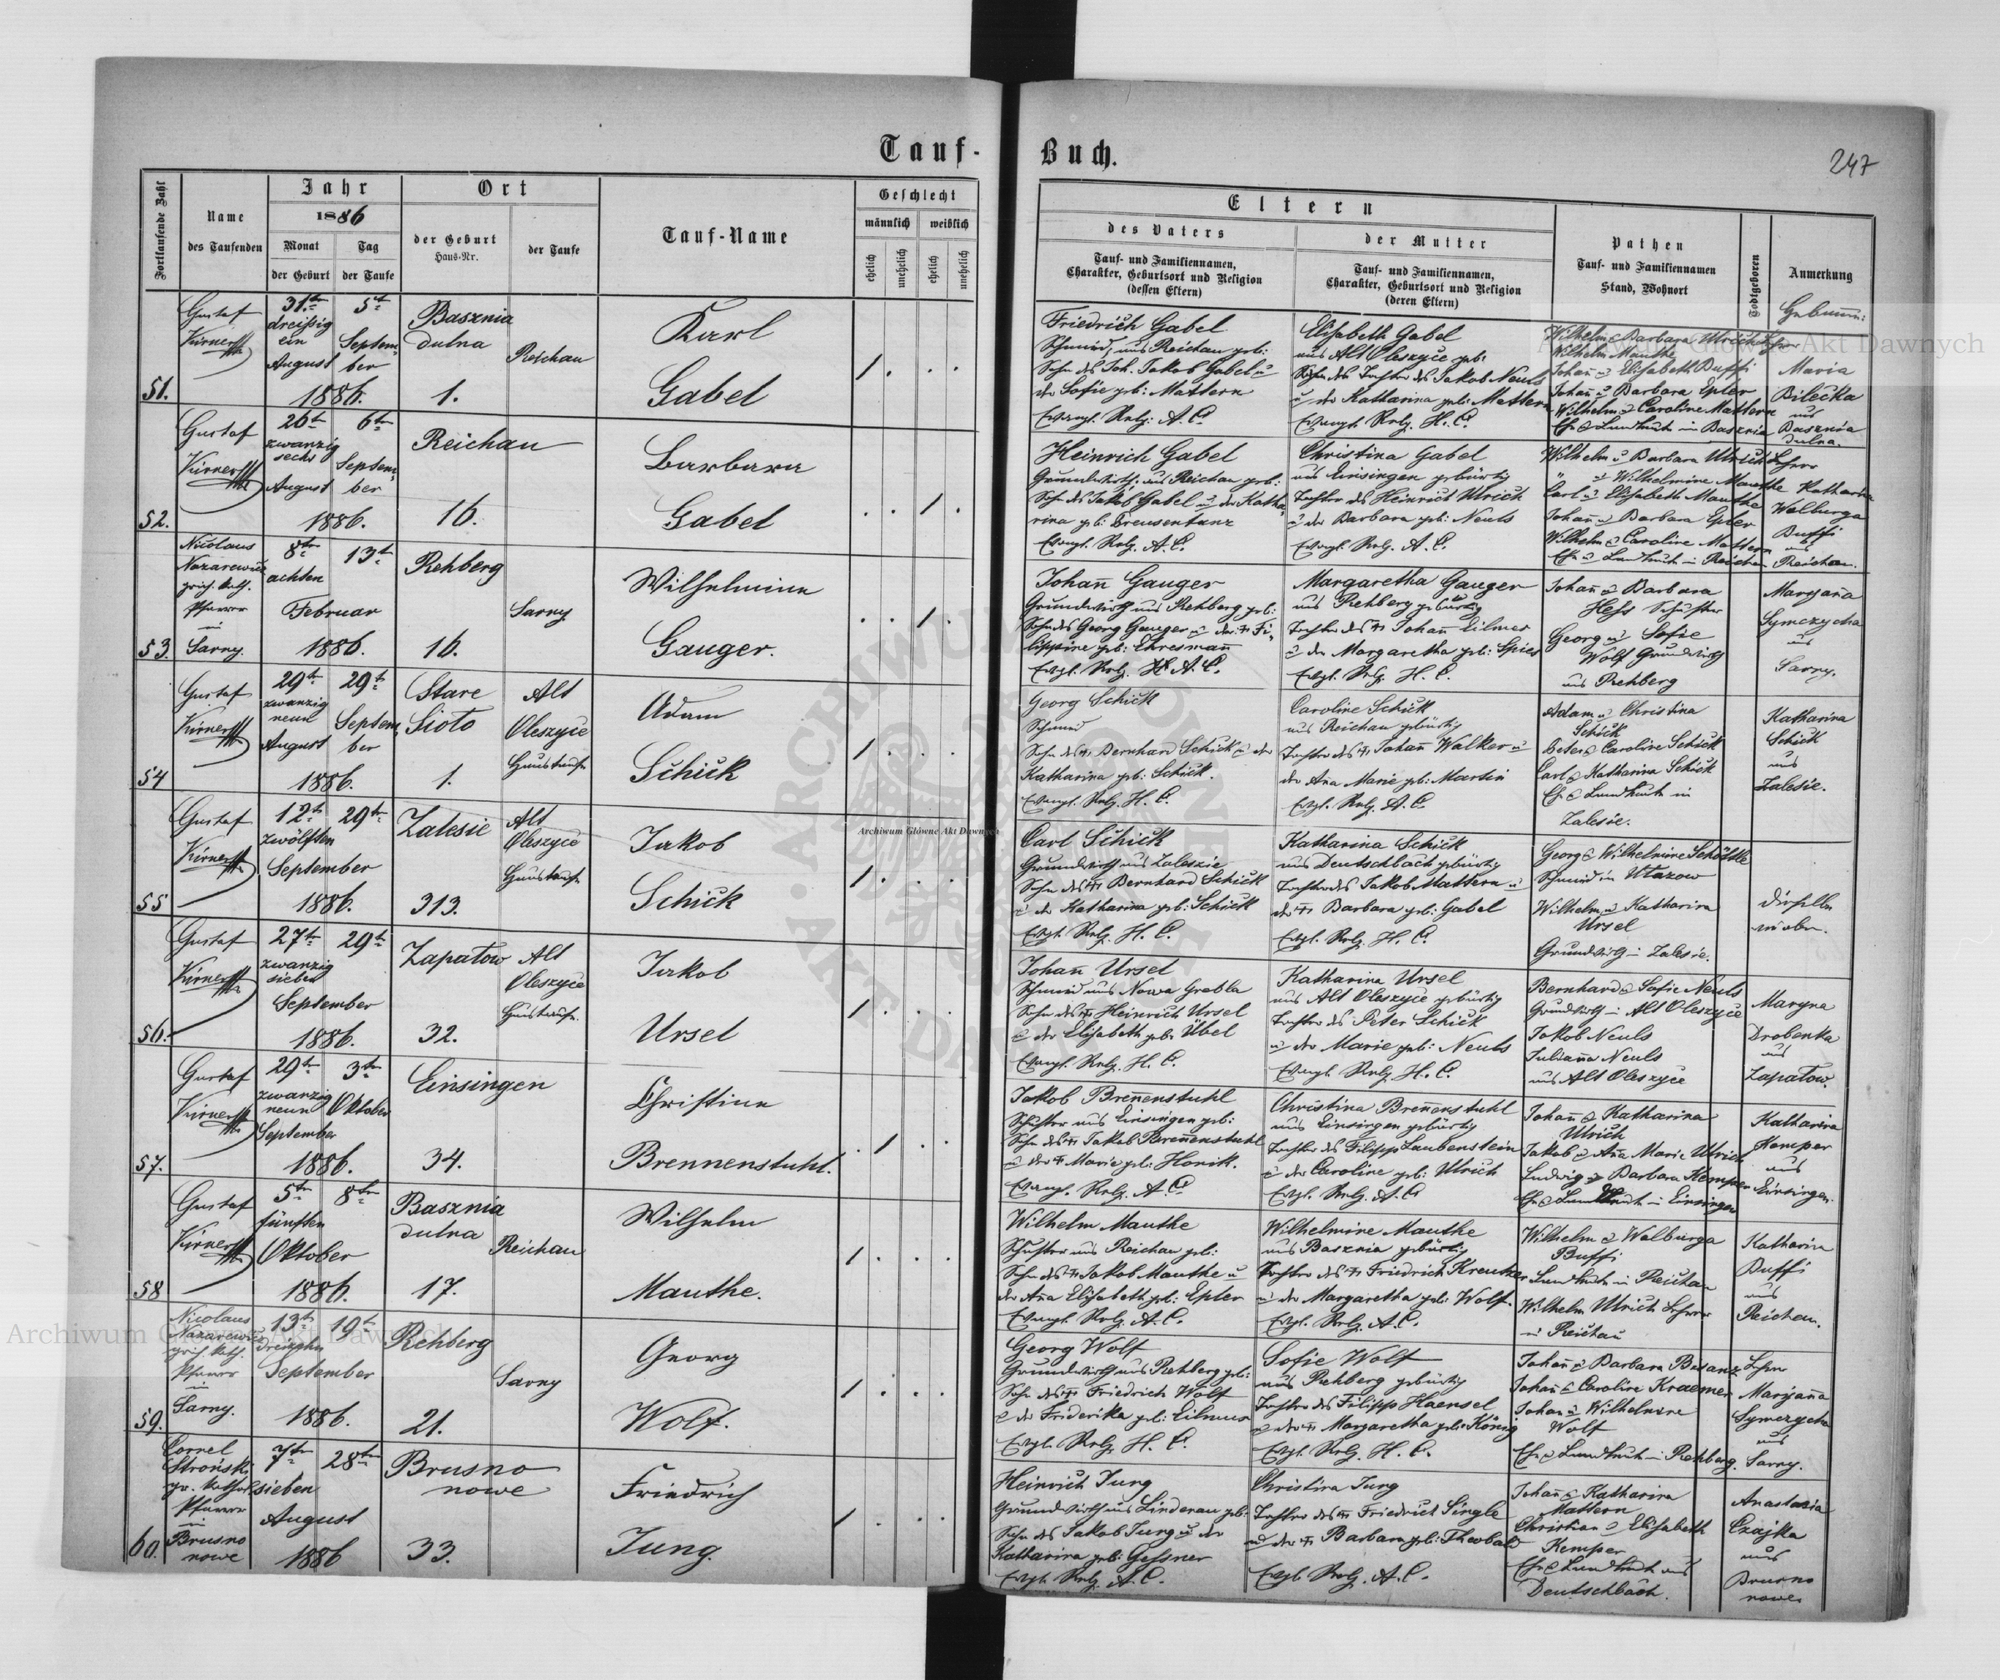 Tauf-Buch.
247
Fortlaufende Zahl
Name
des Taufenden
Jahr
1886
Monat
der Geburt
Tag
der Taufe
Ort
der Geburt
Haus-Nr.
der Taufe
Tauf-Name
Geschlecht
männlich
weiblich
ehelich
unehelich
ehelich
unehelich
Eltern
des Vaters
Tauf- und Familiennamen,
Charakter, Geburtsort und Religion
(dessen Eltern)
der Mutter
Tauf- und Familiennamen,
Charakter, Geburtsort und Religion
(deren Eltern)
Pathen
Tauf- und Familiennamen
Stand, Wohnort
Todtgeboren
Anmerkung
51.
Gustaf
31t
dreißig
ein
August
5t
Septem-
ber
1886.
Basznia
dulna
1.
Reichau
Karl
Gabel
1 . . .
Friedrich Gabel
Schmid, aus Reichau geb:
Sohn des Joh. Jakob Gabel u
der Sofie geb: Mattern
Evangl. Relg: A.C.
Elisabeth Gabel
aus Alt Oleszyce geb:
Tochter des Jakob Neuls
u der Katharina geb: Mattern
Evangl. Relg. H.C.
Wilhelm u Barbara Ulrich Lehrer
Wilhelm Mauthe
Johann u Elisabeth Buffi
Johann u Barbara Epler
Wilhelm u Caroline Mattern
in Basznia
Maria
Bilecka
aus
Basznia
dulna.
52.
Gustaf
26t
zwanzig
sechs
August
6t
Septem-
ber
1886.
Reichau
16.
Barbara
Gabel
. . 1 .
Heinrich Gabel
Grundwirth, aus Reichau geb:
Sohn des Jakob Gabel u der Katha-
rina geb: Greusentanz
Evangl. Relg. A.C.
Christina Gabel
aus Einsingen gebürtig
Tochter des Heinrich Ulrich
u der Barbara geb: Neuls
Evangl. Relg. A.C.
Wilhelm u Barbara Ulrich Lehrer
u Wilhelmine Mauthe
Carl u Elisabeth Mauthe
Johann u Barbara Epler
Wilhelm u Caroline Mattern
in Reichau
Katharina
Walburga
Buffi
aus
Reichau.
53.
Nicolaus
Nazarewicz
grich. kath.
Pfarrer
in
Sarny.
8t
achten
Februar
13t
1886.
Rehberg
16.
Sarny
Wilhelmine
Gauger.
. . 1 .
Johann Gauger
Grundwirth aus Rehberg geb:
Sohn des Georg Gauger u der Fi-
lippine geb: Ehresmann
Evgl. Relg. A.C.
Margaretha Gauger
aus Rehberg gebürtig
Tochter des Johann Eilmes
u der Margaretha geb: Spies
Evgl. Relg. H.C.
Johann u Barbara
Hess Schuster
Georg u Sofie
Wolf Grundwirth
aus Rehberg
Maryana
Symczycha
aus
Sarny.
54
Gustaf
29t
zwanzig
neun
August
29t
Septem
ber
1886.
Stare
Sioto
1.
Alt
Oleszyce
Haustaufe
Adam
Schick
1 . . .
Georg Schick
Schmid
Sohn des Bernhard Schick u der
Katharina geb: Schick.
Evangl. Relg. H.C.
Caroline Schick
aus Reichau gebürtig
Tochter des Johann Walker u
der Ana Marie geb: Martin
Evgl. Relg. A.C.
Adam u Christina
Schick
Peter u Caroline Schick
Carl u Katharina Schick
in
Zalesie.
Katharina
Schick
aus
Zalesie.
55
Gustaf
12t
zwölften
September
29t
1886.
Zalesie
313.
Alt
Oleszyce
Haustaufe
Jakob
Schick
1 . . .
Carl Schick
Grundwirth aus Zaleszie
Sohn des Bernhard Schick
u der Katharina geb: Schick
Evgl. Relg. H.C.
Katharina Schick
aus Deutschbach gebürtig
Tochter des Jakob Mattern u
der Barbara geb: Gabel
Evgl. Relg. H.C.
Georg u Wilhelmine Schöttle
Schmid in Wlazow
Wilhelm u Katharina
Ursel
Grundwirth in Zalesie.
dieselbe
wie oben.
56.
Gustaf
27t
zwanzig
sieben
September
29t
1886.
Zapatow
32.
Alt
Oleszyce
Haustaufe.
Jakob
Ursel
1 . . .
Johann Ursel
Schmid aus Nowa Grobla
Sohn des Heinrich Ursel
u der Elisabeth geb: Übel
Evangl. Relg. H.C.
Katharina Ursel
aus Alt Oleszyce gebürtig
Tochter des Peter Schick
u der Marie geb: Neuls
Evangl. Relg. H.C.
Bernhard u Sofie Neuls
Grundwirth in Alt Oleszyce
Jakob Neuls
Juliana Neuls
aus Alt Oleszyce
Maryna
Drobenka
aus
Zapatow.
57.
Gustaf
29t
zwanzig
neun
September
3t
Oktober
1886.
Einsingen
34.
Christine
Brennenstuhl.
. 1 . .
Jakob Brennenstuhl
Schuster aus Einsingen geb:
Sohn des Jakob Brennenstuhl
u der Marie geb: Honik.
Evangl. Relg. A.C.
Christina Brennenstuhl
aus Einsingen gebürtig
Tochter des Filipp Laubenstein
u der Caroline geb: Ulrich
Evgl. Relg. A.C.
Johann u Katharina
Ulrich
Jakob u Ana Marie Ulrich
Ludwig u Barbara Kemper
in Einsingen
Katharina
Kemper
aus
Einsingen.
58
Gustaf
5t
fünften
Oktober
8t
1886.
Basznia
dulna
17.
Reichau
Wilhelm
Mauthe.
1 . . .
Wilhelm Mauthe
Schuster aus Reichau geb:
Sohn des Jakob Mauthe u
der Ana Elisabeth geb: Epler
Evangl. Relg. A.C.
Wilhelmine Mauthe
aus Basznia gebürtig
Tochter des Friedrich Kreutzer
u der Margaretha geb: Wolf.
Evgl. Relg. A.C.
Wilhelm u Walburga
Buffi
in Reichau
Wilhelm Ulrich Lehrer
in Reichau
Katharina
Buffi
aus
Reichau.
59.
Nicolaus
Nazarewicz
grich. kath.
Pfarrer
in
Sarny.
13t
dreizehn
September
19t
1886.
Rehberg
21.
Sarny
Georg
Wolf.
1 . . .
Georg Wolf
Grundwirth aus Rehberg geb:
Sohn des Friedrich Wolf
u der Friderika geb: Eilmus
Evgl. Relg. H.C.
Sofie Wolf
aus Rehberg gebürtig
Tochter des Filipp Haensel
u der Margaretha geb: König
Evgl. Relg. H.C.
Johann u Barbara Besanz
Johann u Caroline Kraemer
Johan u Wilhelmine
Wolf
in Rehberg.
Maryana
Symczycha
aus
Sarny.
60.
Cornel
Stroński
gr. kathol
Pfarrer
in
Brusno
nowe
7t
sieben
August
28t
1886
Brusno
nowe
33.
Friedrich
Jung.
1 . . .
Heinrich Jung
Grundwirth aus Lindenau geb:
Sohn des Jakob Jung u der
Katharina geb: Gessner
Evgl. Relg. A.C.
Christina Jung
Tochter des Friedrich Single
u der Barbara geb: Theobald
Evgl. Relg. A.C.
Johann u Katharina
Mattern
Christian u Elisabeth
Kemper
aus
Deutschbach.
Anastazia
Czajka
aus
Brusno
nowe.
Archiwum Główne Akt Dawnych